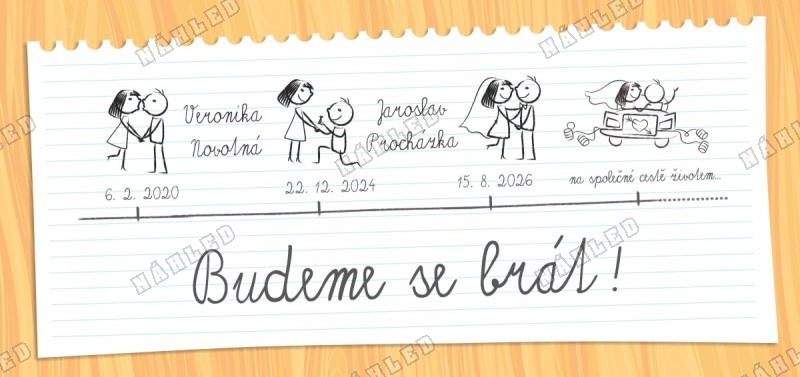 Veronika
Novotná
Jaroslav
Procházka
6. 2. 2020
22. 12. 2024
15. 8. 2026
na společné cestě životem...
Budeme se brát!
NÁHLED
NÁHLED
NÁHLED
NÁHLED
NÁHLED
NÁHLED
NÁHLED
NÁHLED
NÁHLED